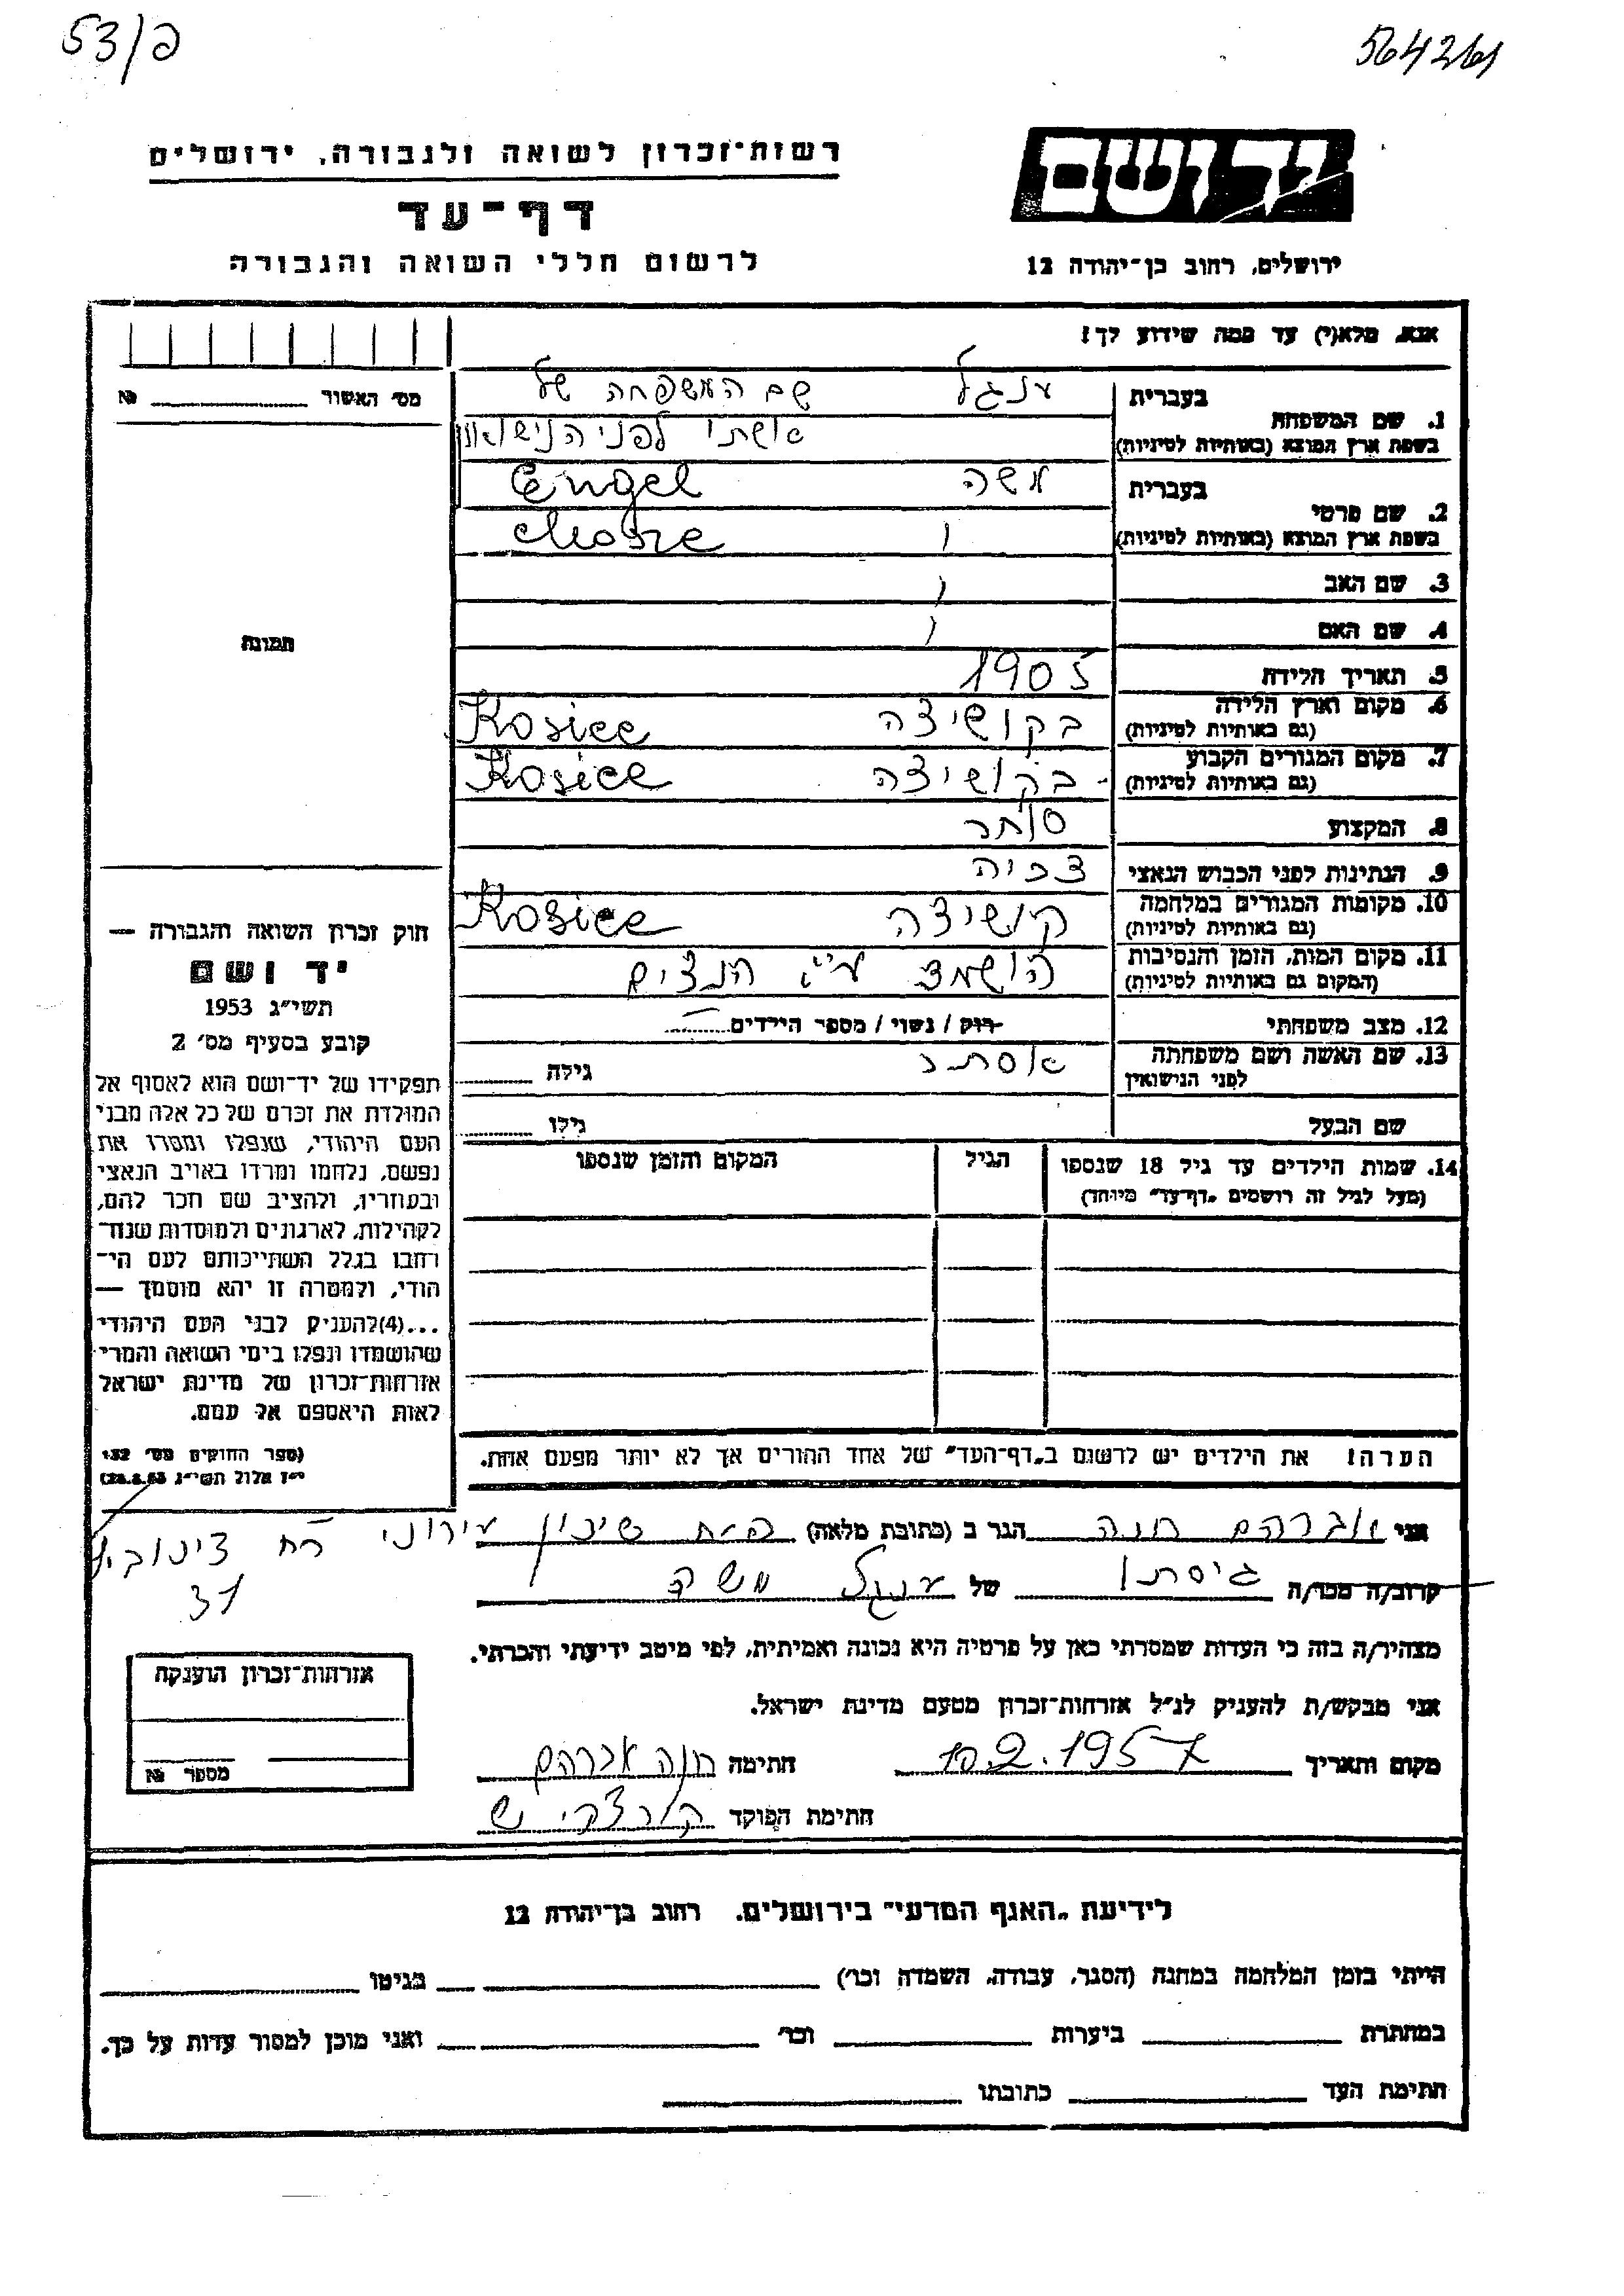 53/פ
564261
יד ושם
ירושלים, רחוב בן-יהודה 12
רשות-זכרון לשואה ולגבורה, ירושלים
דף-עד
לרשום חללי השואה והגבורה
אנא, מלא(י) עד כמה שידוע לך!
מס' האשור № 
1. שם המשפחה בעברית ענגל שם המשפחה של
בשפת ארץ המוצא (באותיות לטיניות) אשתו לפני הנישואין
2. שם פרטי בעברית משה Engel
בשפת ארץ המוצא (באותיות לטיניות) Mosze
3. שם האב
4. שם האם
5. תאריך הלידה 1905
6. מקום וארץ הלידה בקושיצה Kosice
(גם באותיות לטיניות)
7. מקום המגורים הקבוע בקושיצה Kosice
(גם באותיות לטיניות)
8. המקצוע סוחר
9. הנתינות לפני הכבוש הנאצי צכיה
10. מקומות המגורים במלחמה קושיצה Kosice
(גם באותיות לטיניות)
11. מקום המות, הזמן והנסיבות הושמד ע"י הנצים
(המקום גם באותיות לטיניות)
12. מצב משפחתי רווק / נשוי / מספר הילדים
13. שם האשה ושם משפחתה אסתר גילה
לפני הנישואין
שם הבעל גילו
14. שמות הילדים עד גיל 18 שנספו הגיל המקום והזמן שנספו
(מעל לגיל זה רושמים „דף-עד" מיוחד)
הערה! את הילדים יש לרשום ב„דף-העד" של אחד ההורים אך לא יותר מפעם אחת.
תמונה
חוק זכרון השואה והגבורה —
יד ושם
תשי"ג 1953
קובע בסעיף מס' 2
תפקידו של יד-ושם הוא לאסוף אל
המולדת את זכרם של כל אלה מבני
העם היהודי, שנפלו ומסרו את
נפשם, נלחמו ומרדו באויב הנאצי
ובעוזריו, ולהציב שם וזכר להם,
לקהילות, לארגונים ולמוסדות שנח-
רבו בגלל השתייכותם לעם הי-
הודי, ולמטרה זו יהא מוסמך —
...(4)להעניק לבני העם היהודי
שהושמדו ונפלו בימי השואה והמרי
אזרחות-זכרון של מדינת ישראל
לאות היאספם אל עמם.
(ספר החוקים מס' 132
י"ז אלול תשי"ג 28.8.53)
אני אברהם חנה הגר ב (כתובת מלאה) שיכון עירוני רח
31
קרוב/ה מכר/ה גיסתו של ענגל משה
מצהיר/ה בזה כי העדות שמסרתי כאן על פרטיה היא נכונה ואמיתית, לפי מיטב ידיעתי והכרתי.
אני מבקש/ת להעניק לנ"ל אזרחות-זכרון מטעם מדינת ישראל.
מקום ותאריך 10.2.1957 חתימה חנה אברהם
חתימת הפוקד
אזרחות-זכרון הוענקה
מספר №
לידיעת „האגף המדעי" בירושלים, רחוב בן-יהודה 12
הייתי בזמן המלחמה במחנה (הסגר, עבודה, השמדה וכו') בגיטו
במחתרת ביערות וכו' ואני מוכן למסור עדות על כך.
חתימת העד כתובתו